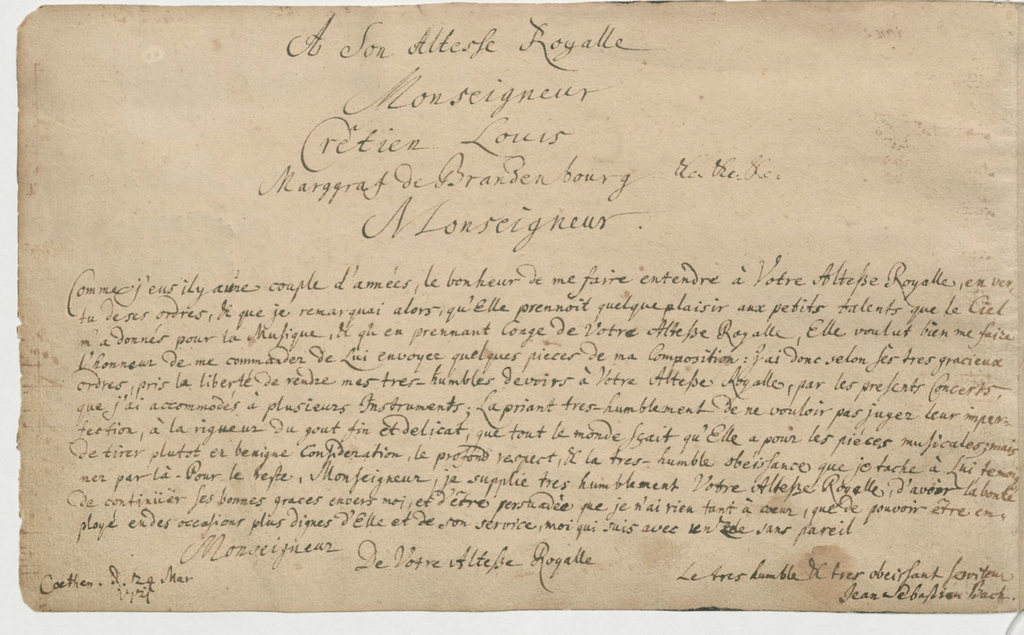 A Son Altesse Royalle
Monseigneur
Crêtien Louis
Marggraf de Brandenbourg &c. &c. &c.
Monseigneur.
Comme j'eus il y a une couple d'années, le bonheur de me faire entendre à Votre Altesse Royalle, en ver-
tu de ses ordres, & que je remarquai alors, qu'Elle prennoit quelque plaisir aux petits talents que le Ciel
m'a donnés pour la Musique, & qu'en prennant Conge de Votre Altesse Royalle, Elle voulut bien me faire
l'honneur de me commander de Lui envoyer quelques pieces de ma Composition: j'ai donc selon ses tres gracieux
ordres, pris la liberté de rendre mes tres-humbles devoirs à Votre Altesse Royalle, par les presents Concerts,
que j'ai accommodés à plusieurs Instruments; La priant tres-humblement de ne vouloir pas juger leur imper-
fection, à la rigueur du gout fin et delicat, que tout le monde sçait qu'Elle a pour les pieces musicales; mais
de tirer plutot en benigne Consideration, le profond respect, & la tres-humble obeissance que je tache à Lui temoig-
ner par là. Pour le reste, Monseigneur, je supplie tres humblement Votre Altesse Royalle, d'avoir la bonté
de continüer ses bonnes graces envers moi, et d'être persuadée que je n'ai rien tant à cœur, que de pouvoir être em-
ployé en des occasions plus dignes d'Elle et de son service, moi qui suis avec un zele sans pareil
Monseigneur
De Votre Altesse Royalle
Coethen. d. 24 Mar
1721
Le tres humble & tres obeissant serviteur
Jean Sebastien Bach.